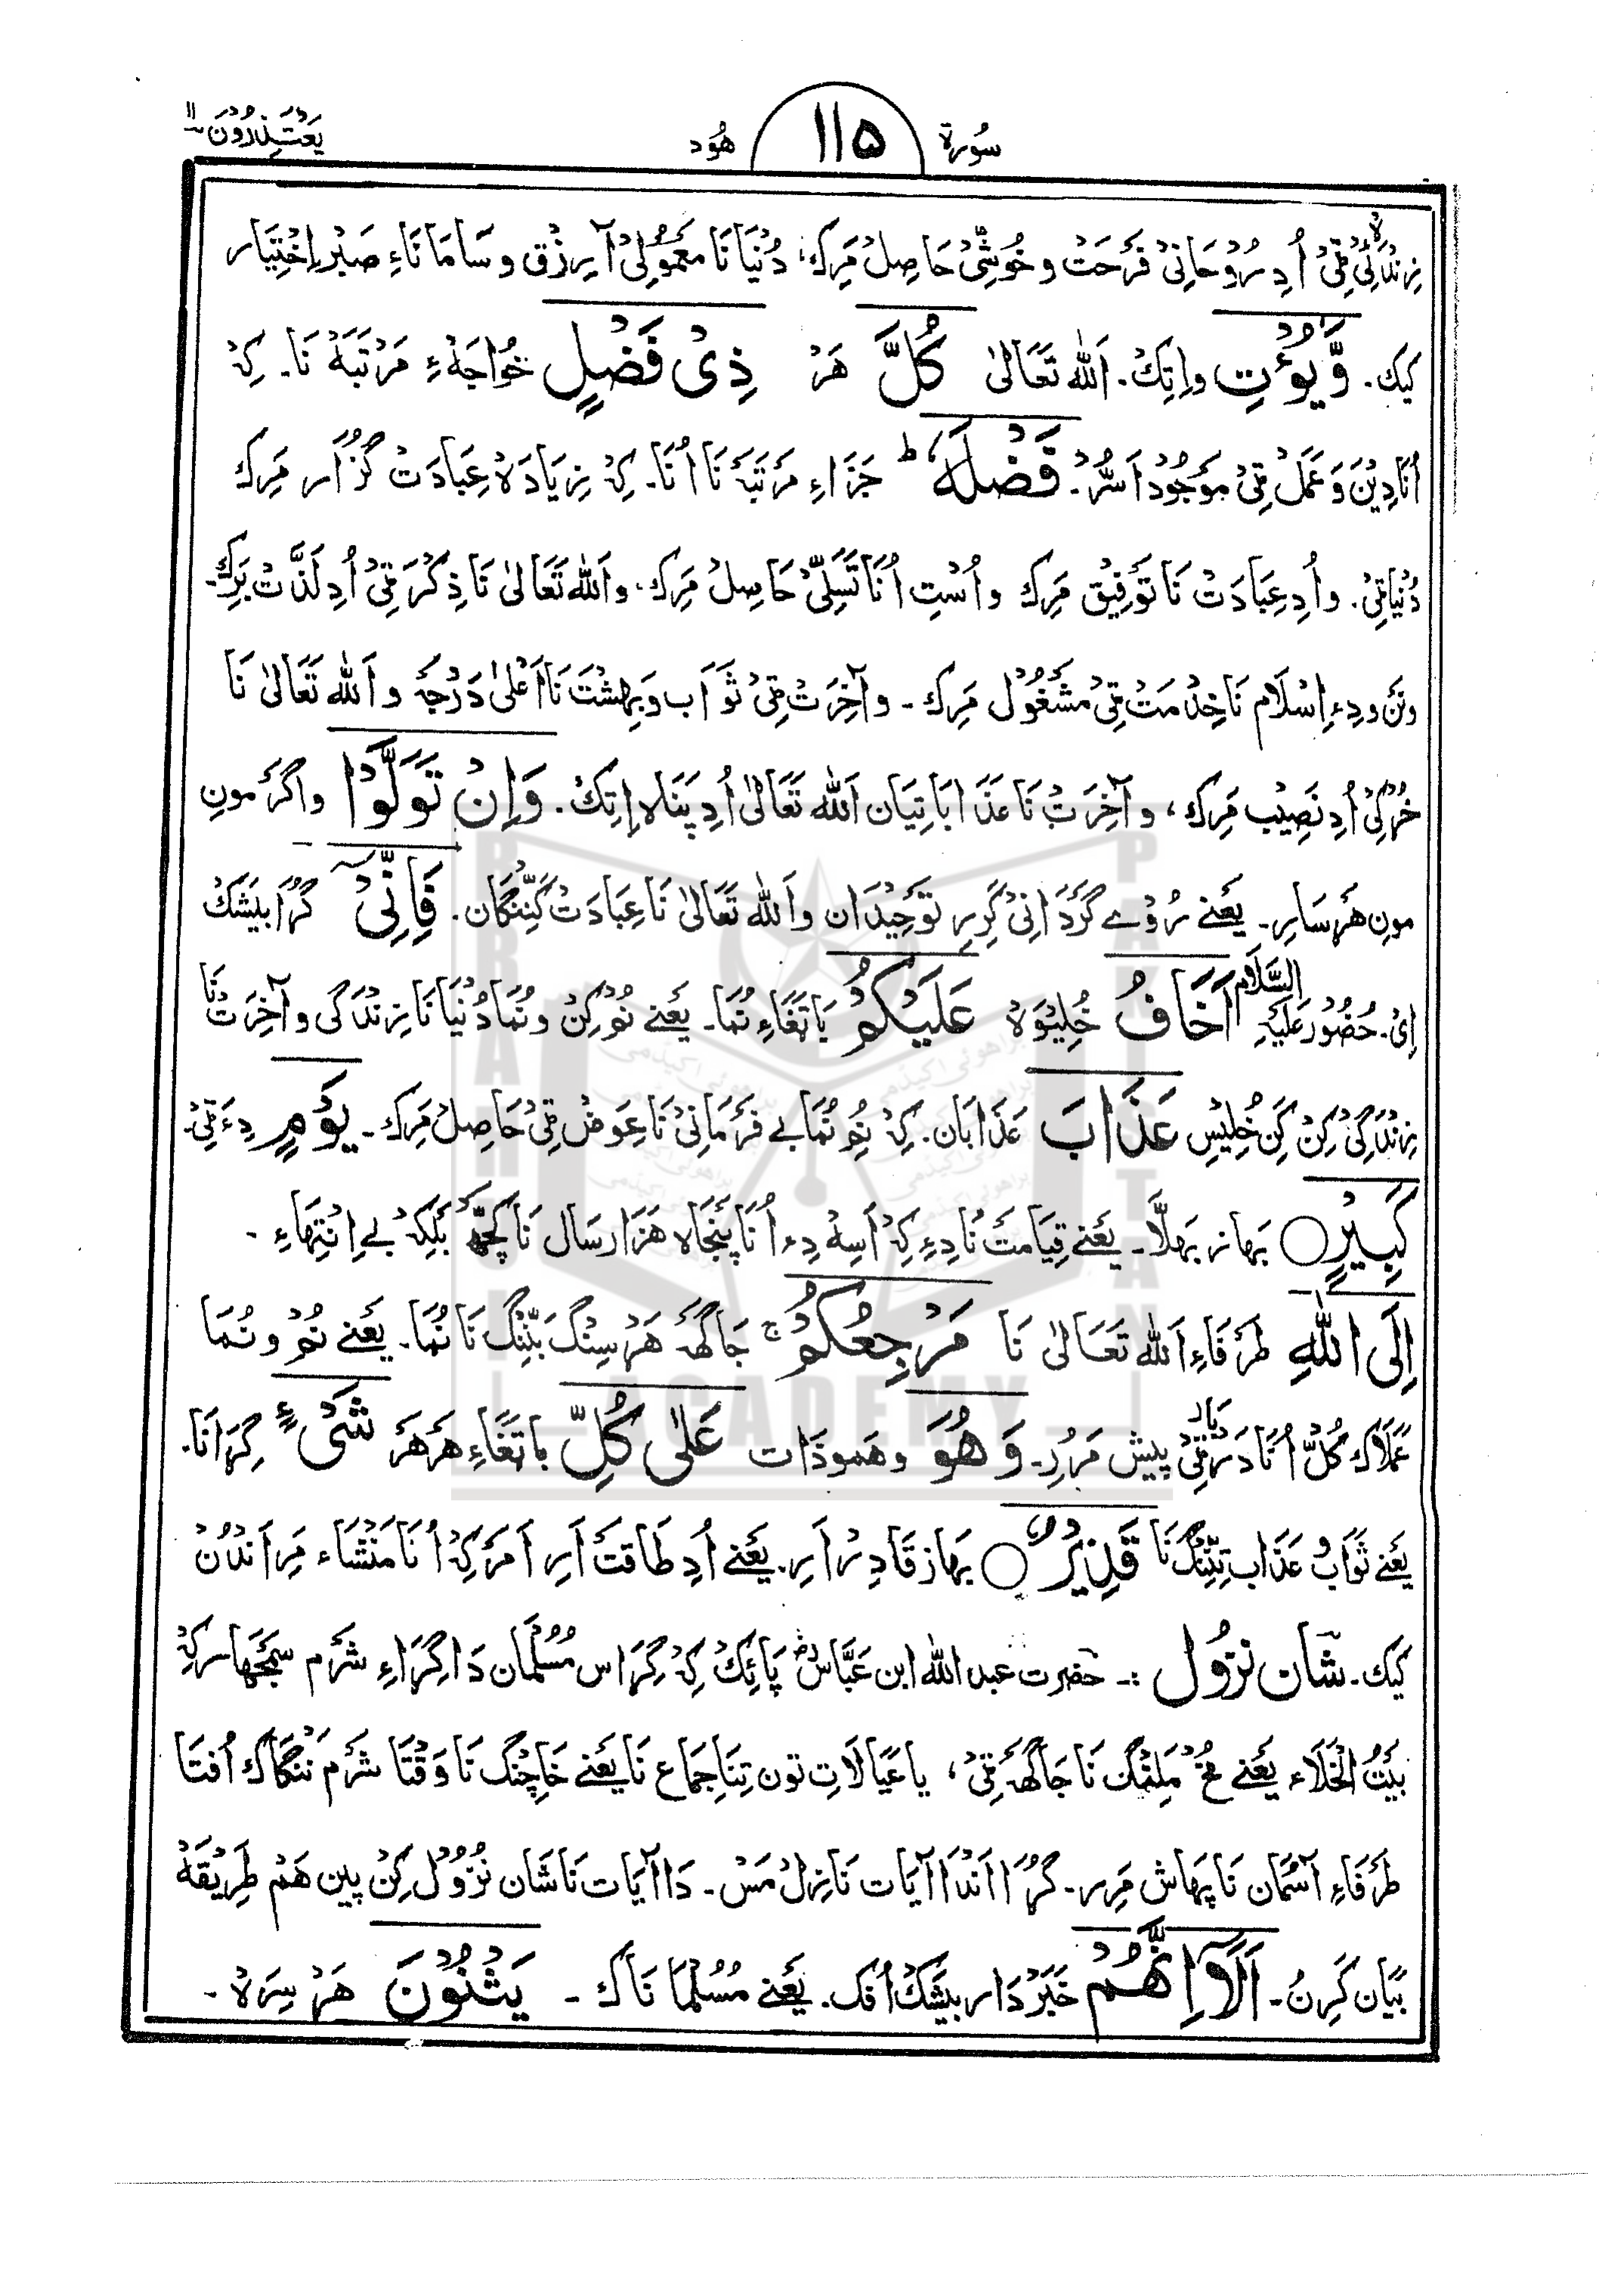 سُورة ۱۱۵ هُود
يَعْتَذِرُونَ ۱۱
زِندَگی ٹی اُدِ رُوْحَانِیْ فَرَحَتْ و خُوشِّیْ حَاصِلْ مَرِك، دُنْیَانَا مَعْمُوْلِیْ آ رِزْق و سَامَانَاءِ صَبْر اِخْتِیَار
کیك۔ وَّیُؤْتِ و اِتِكْ۔ اَللّٰه تَعَالیٰ كُلَّ هَرْ ذِیْ فَضْلٍ خُوَاجَهْءِ مَرْتَبَهْ نَا۔ کِهْ
اُنَا دِیْن وَ عَمَلْ ٹِیْ مَوْجُوْد اَسُّرْ۔ فَضْلَهٗ ؕ جَزَاءِ مَرْتَبَهْ نَا اُنَا۔ کِهْ زِیَادَهْ عِبَادَتْ گُزَار مَرِك
دُنْیَاٹِیْ۔ و اُدِ عِبَادَتْ نَا تَوْفِیْق مَرِك و اُسْتِ اُنَا تَسَلِّیْ حَاصِلْ مَرِك۔ و اَللّٰه تَعَالیٰ نَا ذِکْرَ ٹِیْ اُدِ لَذَّتْ بَرِكْ۔
وَنَن و دِءِ اِسْلَام نَا خِدْمَتْ ٹِیْ مَشْغُوْل مَرِك ۔ و آخِرَتْ ٹِیْ ثَوَاب و بِهِشْت نَا اَعْلیٰ دَرْجَهْ و اَللّٰه تَعَالیٰ نَا
خُرْکِیْ اُدِ نَصِیْب مَرِك، و آخِرَتْ نَا عَذَابَاتِیَان اَللّٰه تَعَالیٰ اُدِ پَنَاه اِتِكْ۔ وَاِنْ تَوَلَّوْا و اگَرْ مونِ
مونِ هَرْسَارِ۔ یَعْنے رُوْے گَرْدَانِیْ کِرِرِ تَوْحِیْدَان و اَللّٰه تَعَالیٰ نَا عِبَادَتْ کَنِّنگَان۔ فَاِنِّیْۤ گُڑَا بیشَكْ
اِیْ۔ حُضُوْر عَلَیْهِ السَّلَام اَخَافُ خُلِیْوَهْ عَلَیْكُمْ بَاتَغَاءِ نُمَا۔ یَعْنے نُمْ کِنْ و نُمَا دُنْیَا نَا زِنْدَگی و آخِرَتْ نَا
زِنْدَگِیْ کِنْ کَن خُلِیْسِ عَذَابَ عَذَابَان۔ کِهْ نُمْ نُمَا بے فَرْمَانِیْ نَا عِوَضْ ٹِیْ حَاصِلْ مَرِك۔ یَوْمٍ دِءَ ٹِیْ۔
كَبِیْرٍ ○ بَهَاز بَهلَّا۔ یَعْنے قِیَامَتْ نَا دِءِ کِهْ اَسِهْ دِءِ اُنَا پَنْجَاه هَزَار سَال نَا کچّھ بَلکِهْ بے اِنْتِهَاءِ ۔
اِلَی اللّٰهِ طَرْفَاءِ اَللّٰه تَعَالیٰ نَا مَرْجِعُكُمْ ۚ جَاگَهْ هَرْسِنْگ بَنِّنْگ نَا نُمَا۔ یَعْنے نُمْ و نُمَا
عَمَلَاك كُلّ اُنَا دَرْبَار ٹِیْ پیش مَرُرِ۔ وَهُوَ و هَموذَات عَلٰی كُلِّ بَاتَغَاءِ هَرْهَرْ شَیْءٍ گِرَانَا۔
یَعْنے ثَوَاب و عَذَاب تِنِنگ نَا قَدِیْرٌ ○ بَهَاز قَادِرْ اَرِ۔ یَعْنے اُدِ طَاقَتْ اَرِ اَمَرْ کِهْ اُنَا مَنْشَاء مَرِ اَنْدُنْ
کیك۔ شَانِ نزُول :۔ حَضرت عبد اللّٰه ابن عَبَّاسؓ پَائِكْ کِهْ گِرَاس مُسُلْمَان دَا گِرَاءِ شَرْم سَمَجْهَاسَر کِهْ
بَیْتُ الْخَلَاء یَعْنے مَلِنگ نَا جَاگَهْ ٹِیْ، یا عَیَالَاتِ تون تِنَا جِمَاع نَا یَعْنے خَاچِنْگ نَا وَقْتَا شَرْم نَنگَاك اُفتَا
طَرْفَاءِ آسْمَان نَا پَهَاش مَرِر۔ گُڑَا اَنْدَا آیَات نَازِلْ مَسْ۔ دَا آیَات نَا شَان نُزُوْل کِنْ پین هَمْ طَرِیْقَهْ
بَیَان کَرِنُ۔ اَلَاۤ اِنَّهُمْ خَبَرْدَار بیشَكْ اُفك۔ یَعْنے مُسُلْمَانَاك ۔ یَثْنُوْنَ هَرْسِرَهْ ۔
BRAHUI
ACADEMY
PAKISTAN